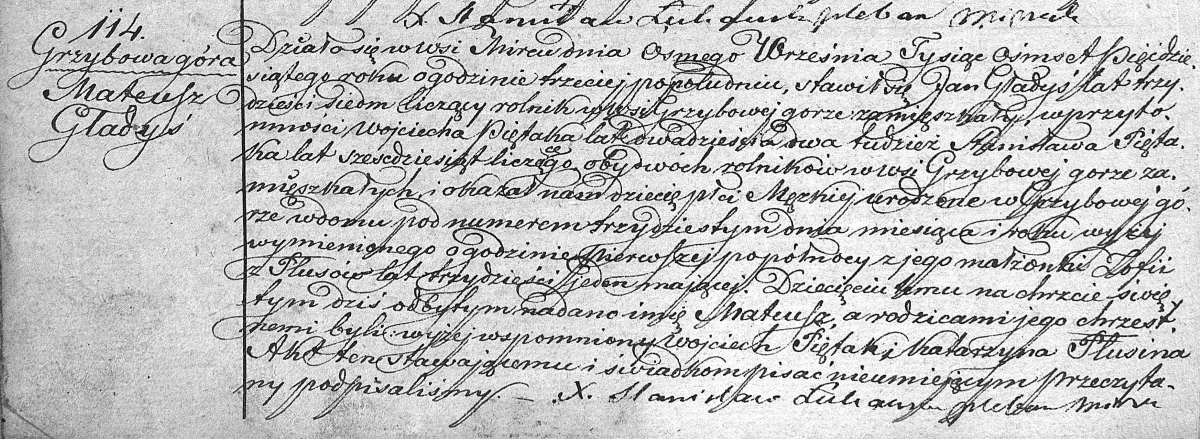 X Stanisław pleban
114.
Grzybowa góra
Mateusz
Gładyś
Działo się w wsi Mircu dnia Ósmego Września Tysiąc Ośmset Pięćdzie-
siątego roku o godzinie trzeciej popołudniu, stawił się Jan Gładyś lat trzy-
dzieści siedm liczący rolnik w wsi Grzybowej gorze zamięszkały, w przyto-
mności Wojciecha Piętaka lat dwadzieścia dwa tudzież Stanisława Pięta-
ka lat sześćdziesiąt liczącego, obydwoch rolników w wsi Grzybowej gorze za-
mięszkałych, i okazał nam dziecię płci Męzkiej urodzone w Grzybowej gó-
rze w domu pod numerem trzydziestym dnia miesiąca i roku wyżej
wymienionego o godzinie Pierwszej popółnocy z jego małżonki Zofii
z Plusów lat trzydzieści jeden mającej. Dziecięciu temu na chrzcie świę-
tym dziś odbytym nadano imię Mateusz, a rodzicami jego chrzest-
nemi byli: wyżej wspomniony Wojciech Piętak i Katarzyna Plusina
Akt ten stawającemu i świadkom pisać nieumiejącym przeczyta-
ny podpisaliśmy. — X. Stanisław pleban